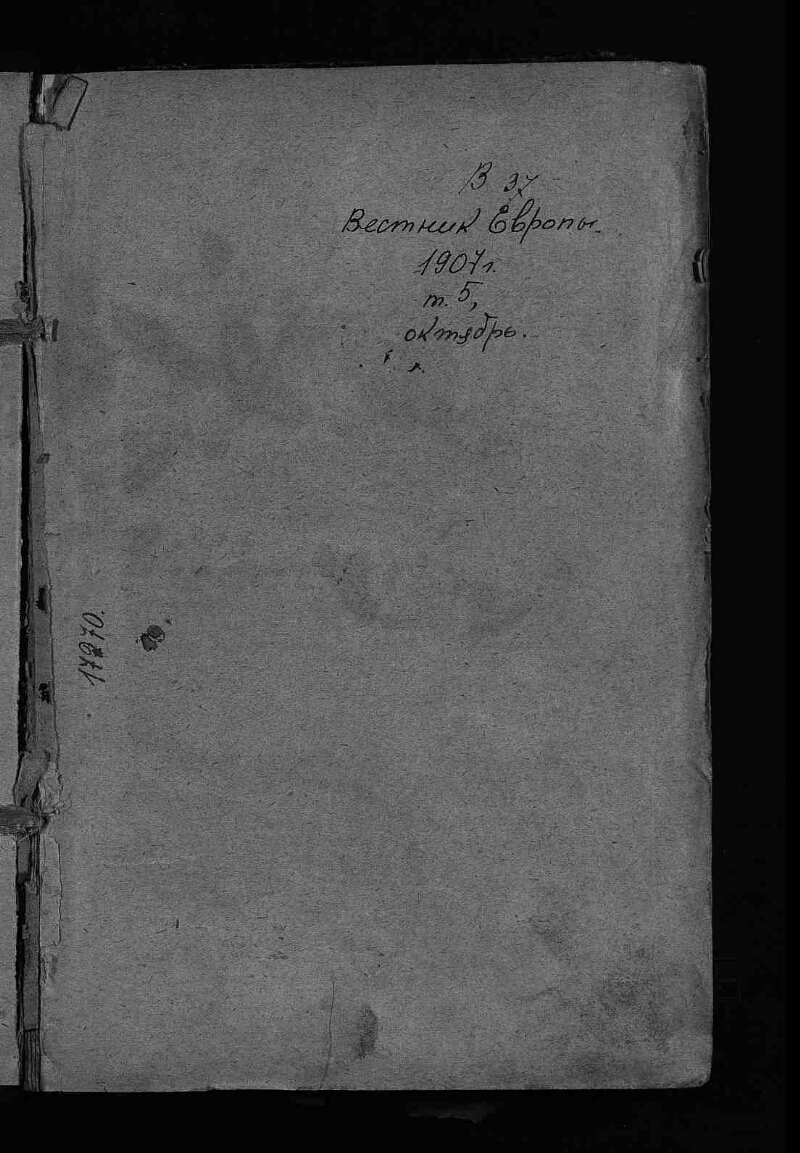 В 37
Вестник Европы.
1907 г.
т. 5,
октябрь.
17270.